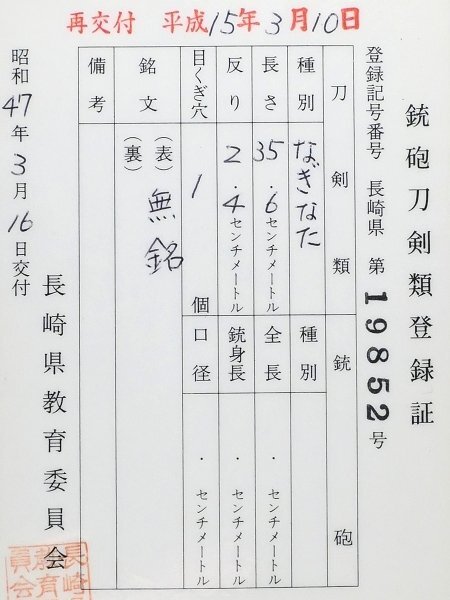 再交付 平成15年3月10日
銃砲刀剣類登録証
登録記号番号 長崎県 第19852号
刀剣類
種別 なぎなた
長さ 35.6センチメートル
反り 2.4センチメートル
目くぎ穴 1個
銘文 (表)無銘
(裏)
備考
銃砲
種別
全長 .センチメートル
銃身長 .センチメートル
口径 .センチメートル
昭和47年3月16日交付
長崎県教育委員会
長崎
教育
員会